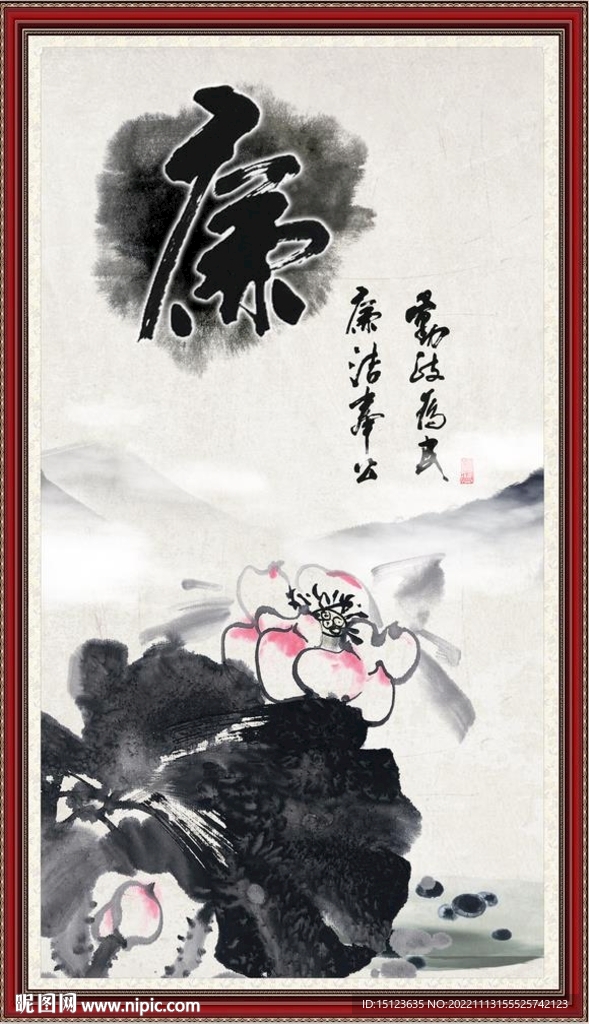 廉
勤政为民
廉洁奉公
昵图网 www.nipic.com
ID:15123635 NO:20221113155525742123